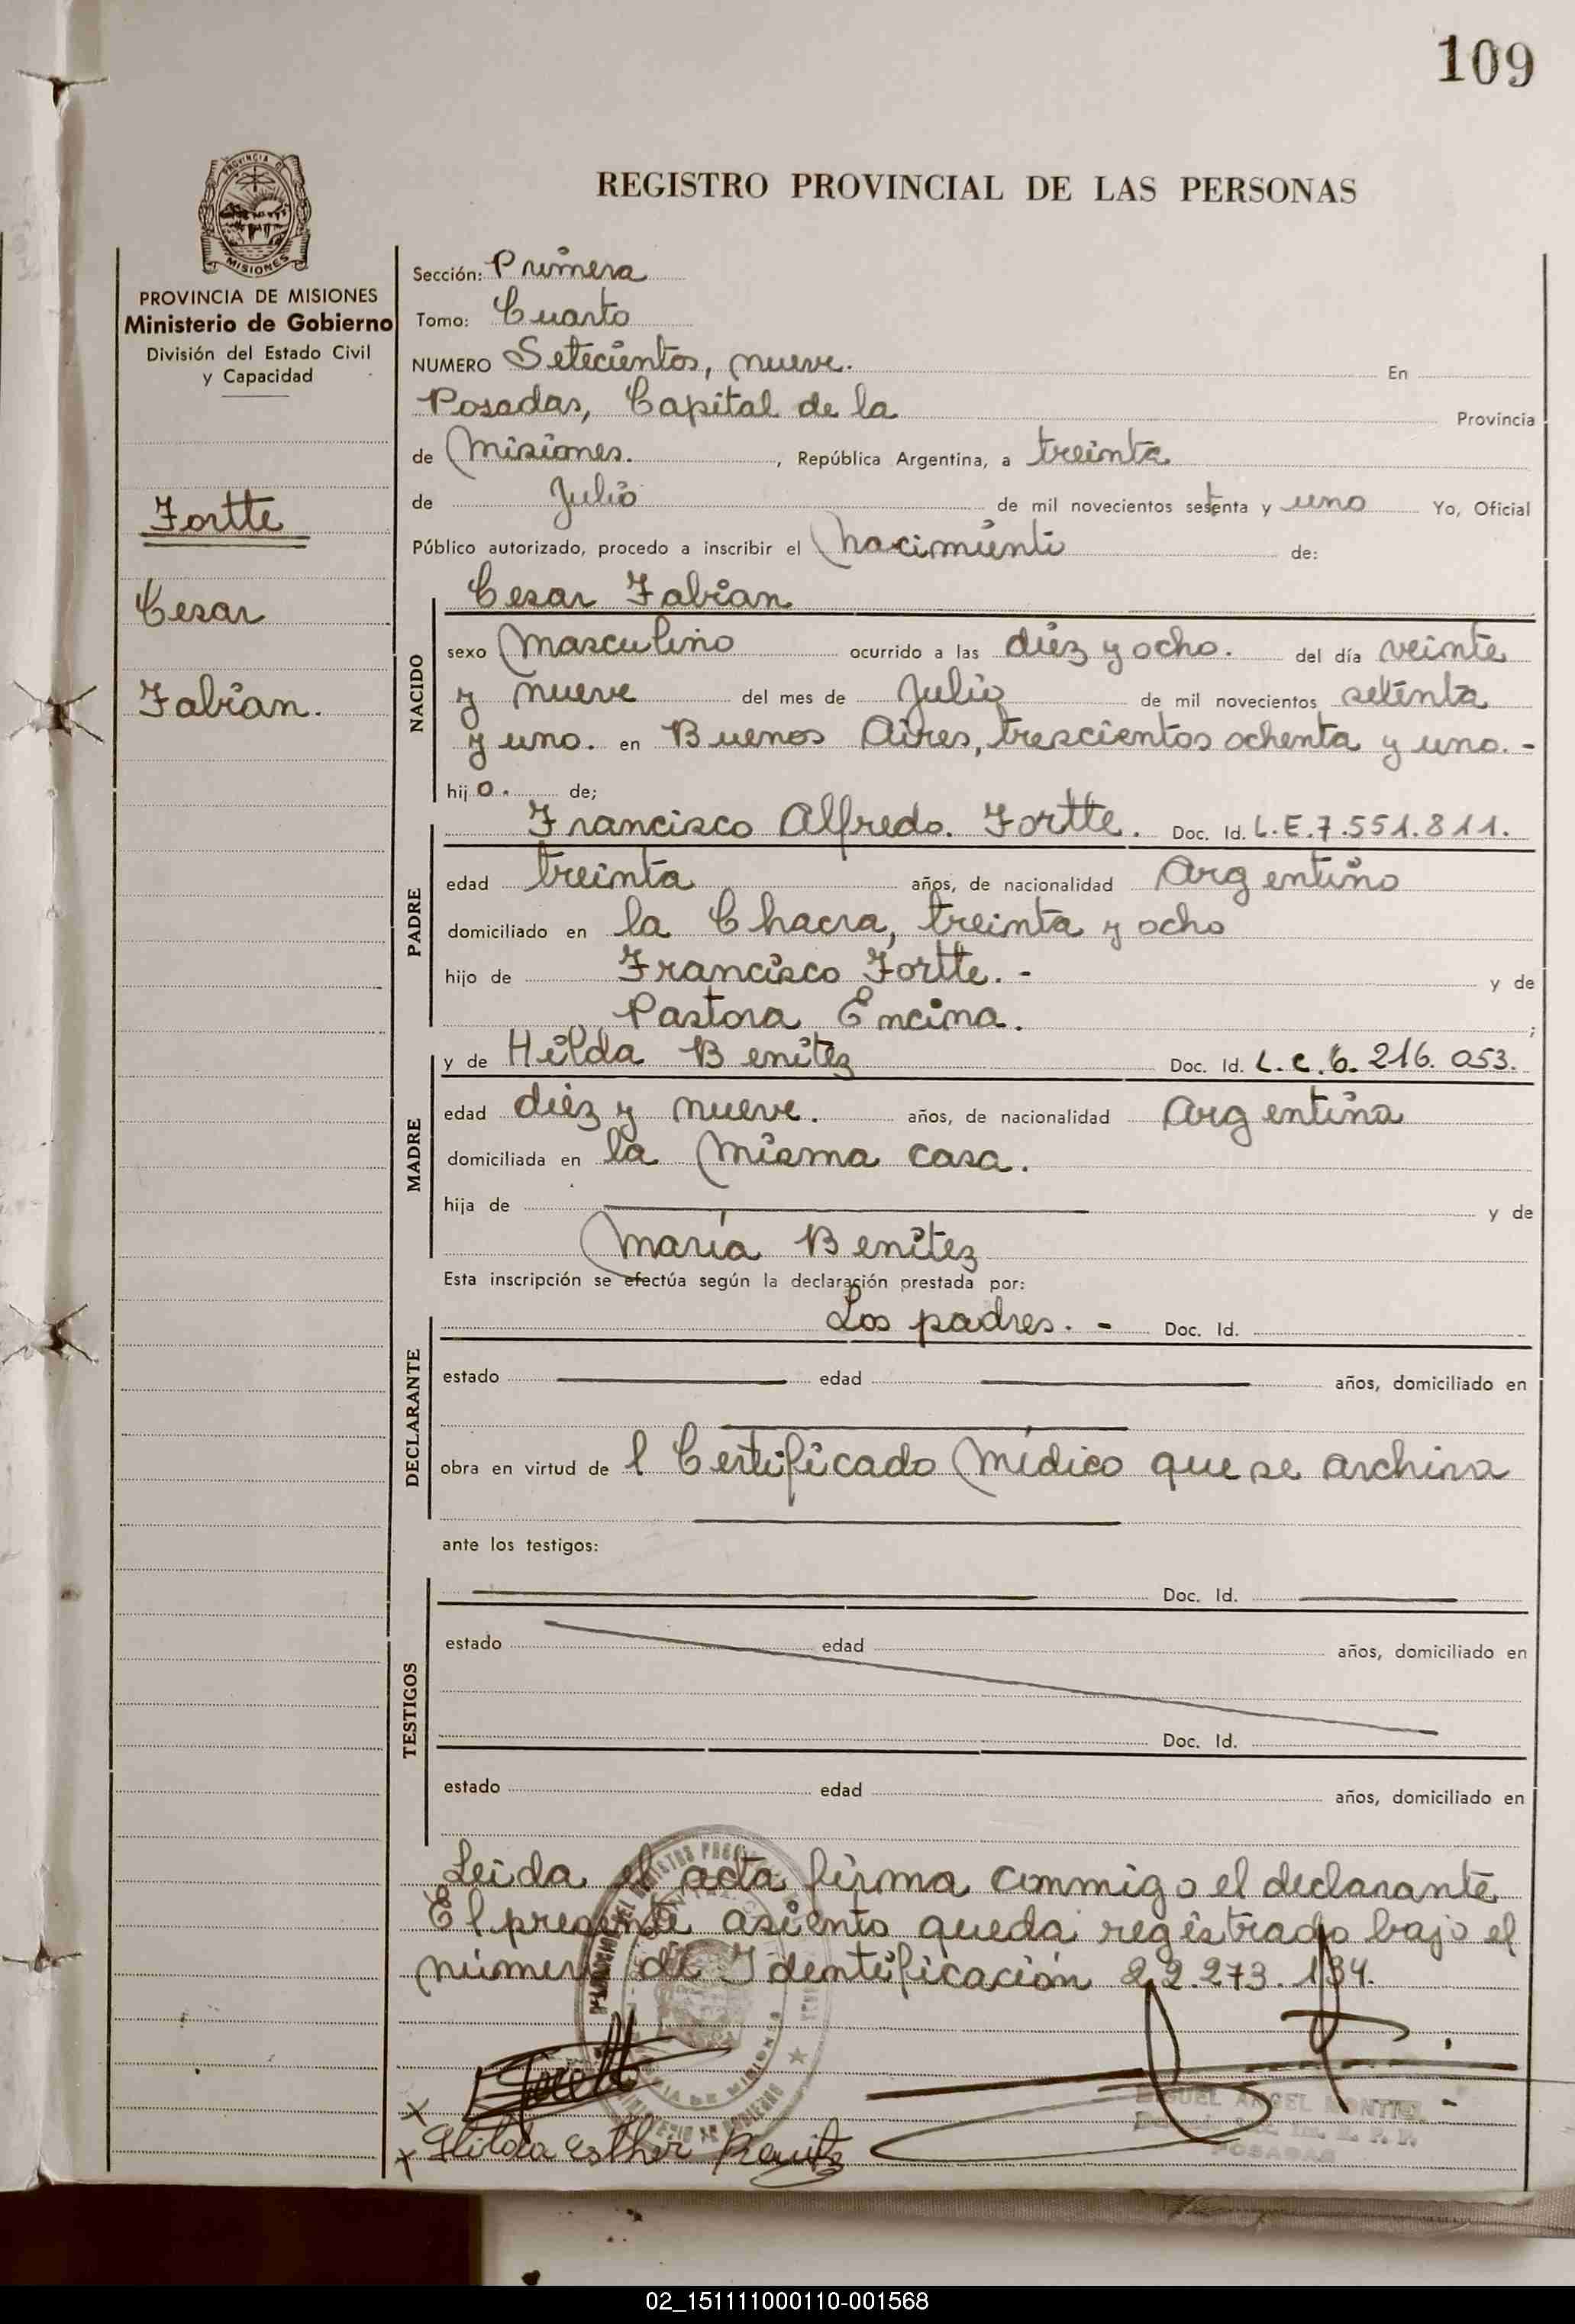 109
REGISTRO PROVINCIAL DE LAS PERSONAS
PROVINCIA DE
MISIONES
PROVINCIA DE MISIONES
Ministerio de Gobierno
División del Estado Civil
y Capacidad
Fortte
Cesar
Fabian.
Sección: Primera
Tomo: Cuarto
NUMERO Setecientos, nueve. En
Posadas, Capital de la Provincia
de Misiones. , República Argentina, a treinta
de Julio de mil novecientos sesenta y uno Yo, Oficial
Público autorizado, procedo a inscribir el nacimiento de:
NACIDO
Cesar Fabian
sexo masculino ocurrido a las diez y ocho. del día veinte
y nueve del mes de Julio de mil novecientos setenta
y uno. en Buenos Aires, trescientos ochenta y uno. -
hijo. de;
PADRE
Francisco Alfredo. Fortte. Doc. Id. L.E.7.551.811.
edad treinta años, de nacionalidad Argentino
domiciliado en la Chacra, treinta y ocho
hijo de Francisco Fortte. - y de
Pastora Encina. ;
MADRE
y de Hilda Benitez Doc. Id. L.C.6.216.053.
edad diez y nueve. años, de nacionalidad Argentina
domiciliada en la misma casa.
hija de y de
María Benitez
Esta inscripción se efectúa según la declaración prestada por:
DECLARANTE
Los padres. - Doc. Id.
estado edad años, domiciliado en
obra en virtud de l Certificado Médico que se archiva
ante los testigos:
TESTIGOS
Doc. Id.
estado edad años, domiciliado en
Doc. Id.
estado edad años, domiciliado en
Leida el acta firma conmigo el declarante
El presente asiento queda registrado bajo el
número de Identificación 22.273.134.
MIGUEL ANGEL MONTIEL
POSADAS
x
x Hilda Esther Benitz
02_151111000110-001568